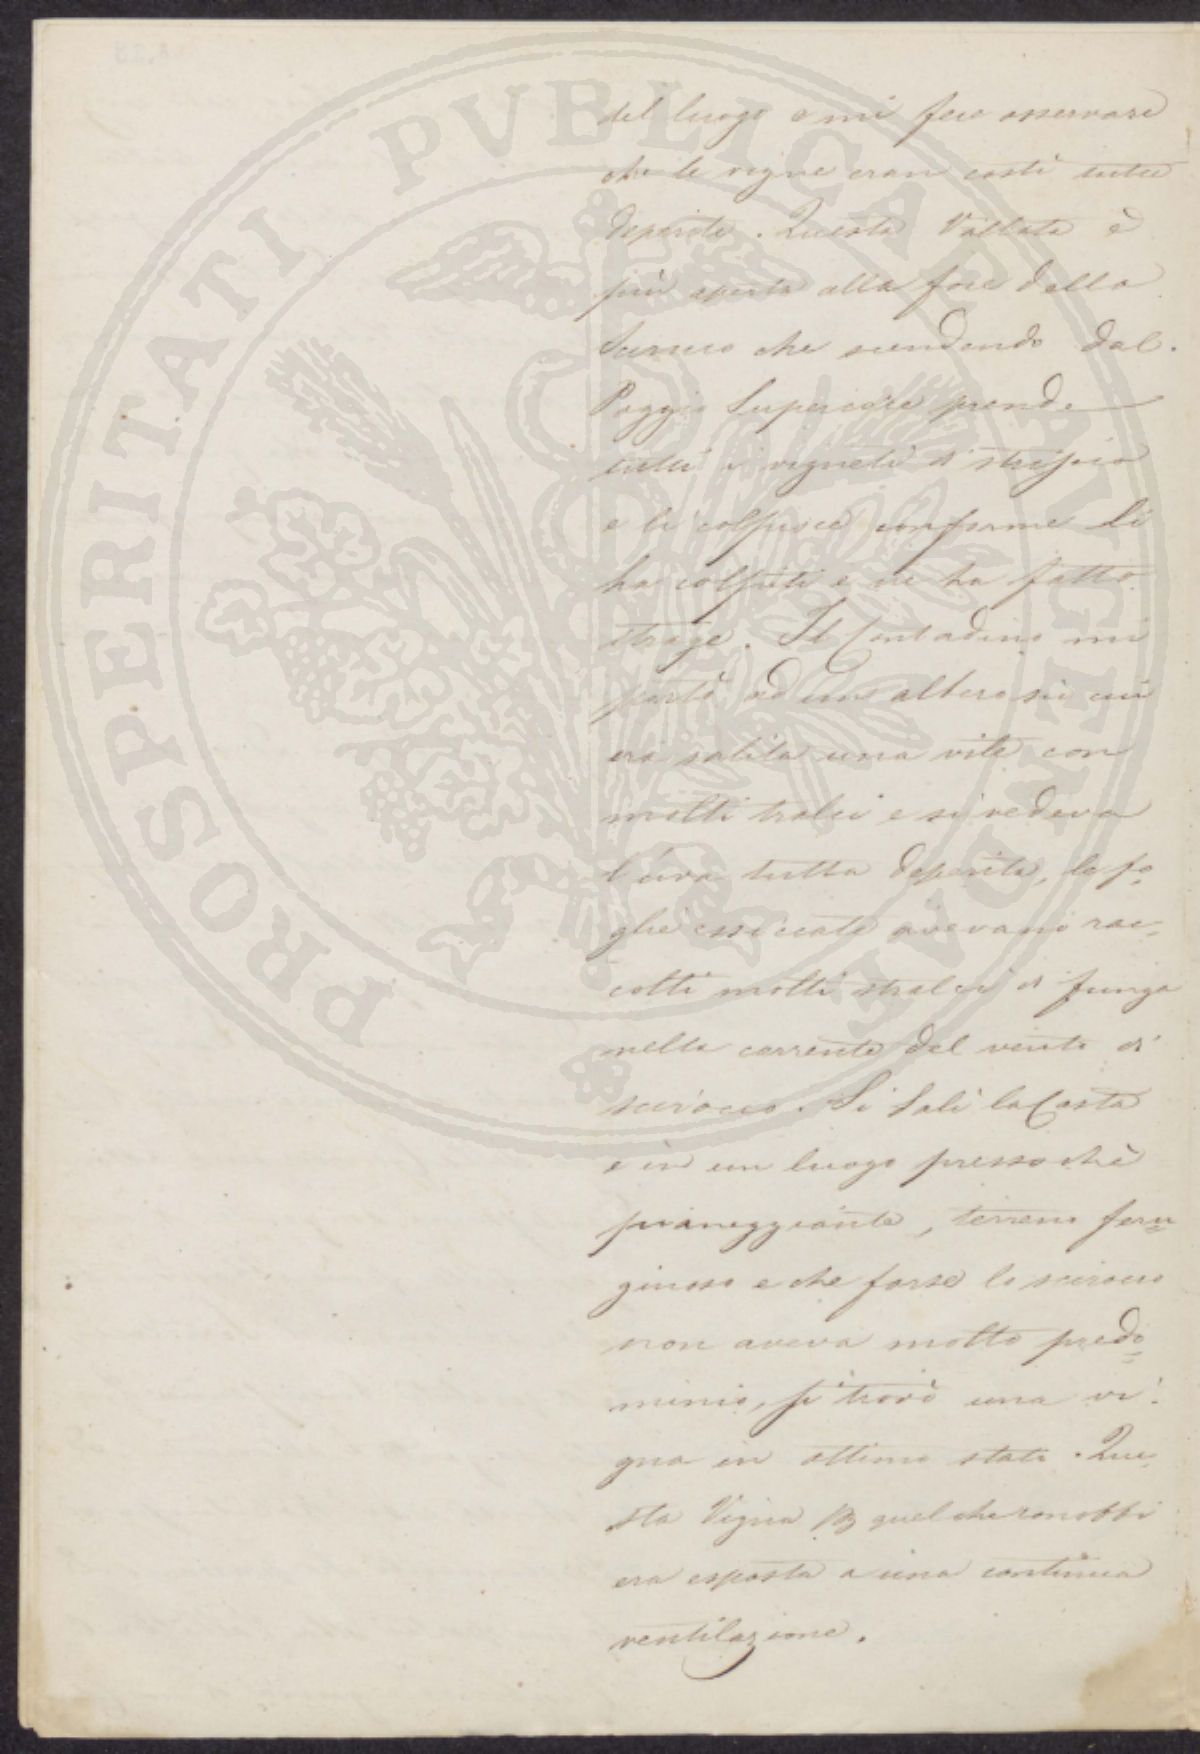 del luogo e mi fece osservare
che le vigne eran costì tutte
deperite. Questa Vallata è
più aperta alla foce dello
Scirocco che scendendo dal
Poggio Superiore prende
tutti i vigneti di striscio
e li colpisce conforme li
ha colpiti e ne ha fatto
strage. Il Contadino mi
portò ad un albero su cui
era salita una vite con
molti tralci e si vedeva
l'uva tutta deperita, le fo=
glie essiccate avevano rac=
colti molti stralci di funga
nella corrente del vento di
scirocco. Si Salì la Costa
e in un luogo pressochè
pianeggiante, terreno feru=
ginoso e che forse lo scirocco
non aveva molto predo=
minio, si trovò una vi=
gna in ottimo stato. Que=
sta Vigna quel che conobbi
era esposta a una continua
ventilazione.
PROSPERITATI PVBLICAE AVGENDAE